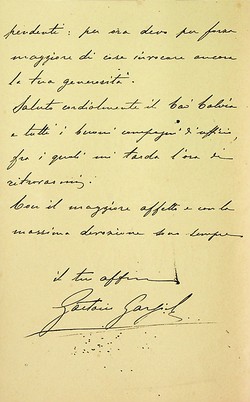 pendenti: per ora devo per forza
maggiore di cose invocare ancora
la tua generosità.
Saluta cordialmente il Cav.
e tutti i buoni compagni d'ufficio,
fra i quali mi tarda l'ora di
ritrovarmi.
Con il maggiore affetto e con la
massima devozione son sempre
il tuo affmo
Gaetano